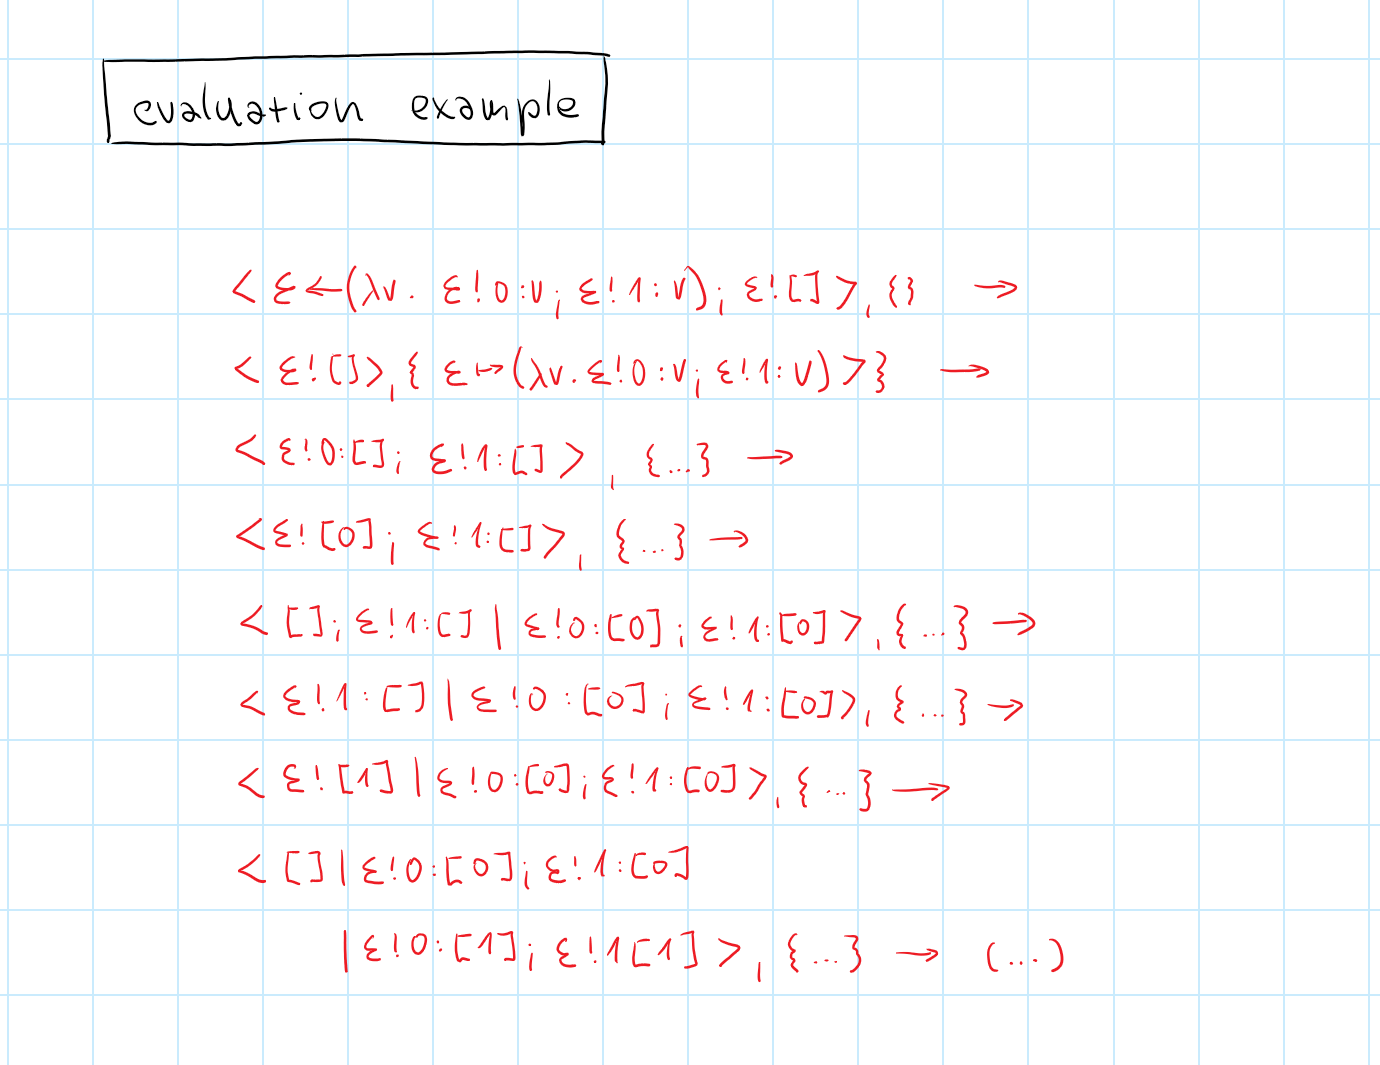 evaluation example
< ε ← (λv. ε!0:v; ε!1:v); ε![] >, {} →
< ε![] >, { ε ↦ (λv. ε!0:v; ε!1:v) > } →
< ε!0:[]; ε!1:[] >, {...} →
< ε![0]; ε!1:[] >, {...} →
< []; ε!1:[] | ε!0:[0]; ε!1:[0] >, {...} →
< ε!1:[] | ε!0:[0]; ε!1:[0] >, {...} →
< ε![1] | ε!0:[0]; ε!1:[0] >, {...} →
< [] | ε!0:[0]; ε!1:[0]
| ε!0:[1]; ε!1[1] >, {...} → (...)